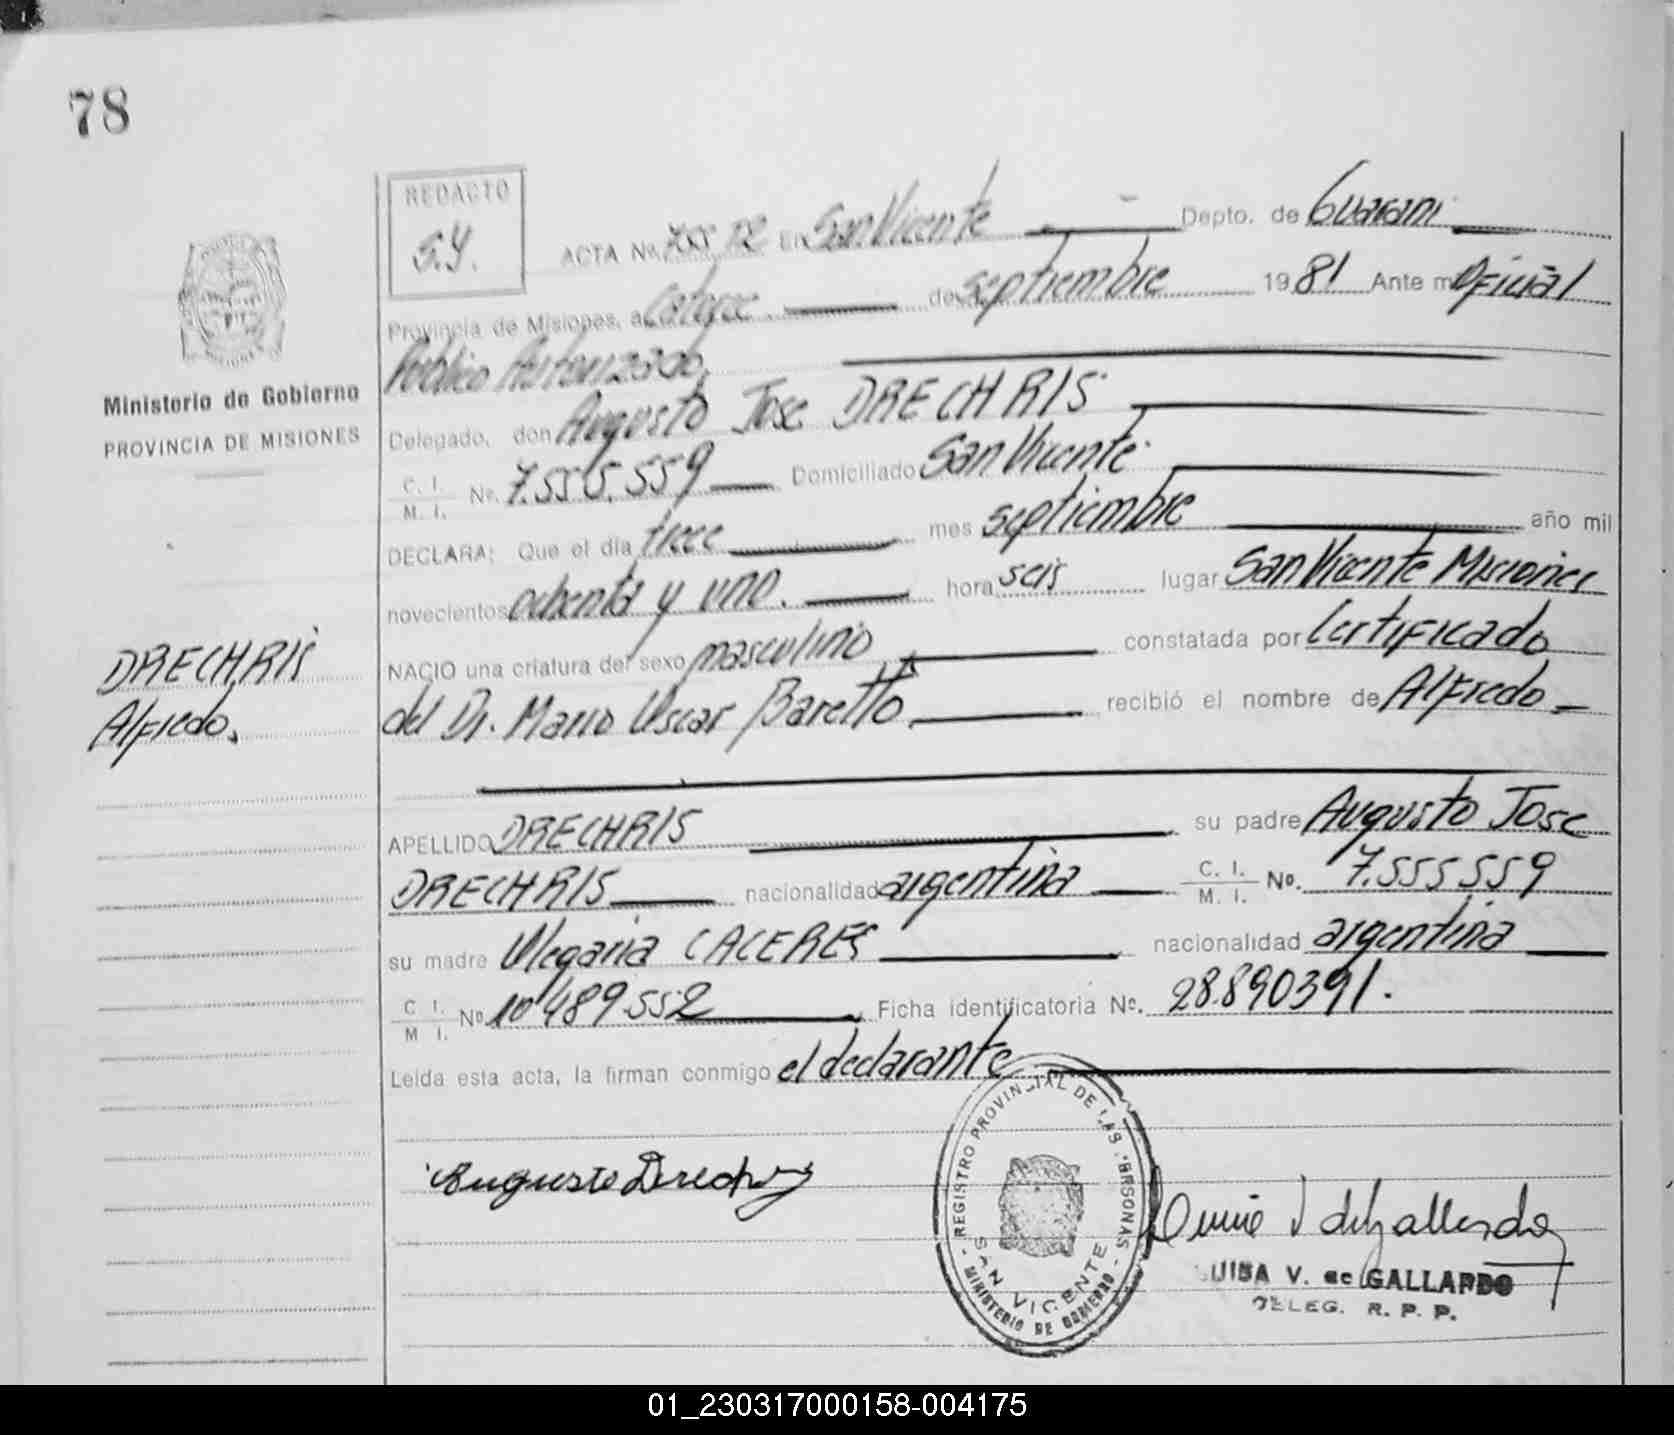 78
REDACTO
S.Y.
ACTA No. En San Vicente Depto. de Guarani
Provincia de Misiones, a catorce de septiembre 1981 Ante mi Oficial
Publico Autorizado,
Ministerio de Gobierno
PROVINCIA DE MISIONES
Delegado, don Augusto Jose DRECHRIS
C. I. M. I. No. 7.555.559 Domiciliado San Vicente
DECLARA: Que el día trece mes septiembre año mil
novecientos ochenta y uno. hora seis lugar San Vicente Misiones
NACIO una criatura del sexo masculino constatada por Certificado
del Dr. Mario Oscar Baretto recibió el nombre de Alfredo
DRECHRIS
Alfredo.
APELLIDO DRECHRIS su padre Augusto Jose
DRECHRIS nacionalidad argentina C. I. M. I. No. 7.555559
su madre Olegaria CACERES nacionalidad argentina
C. I. M I. No 10'489.552 Ficha identificatoria No. 28.890391.
Leida esta acta, la firman conmigo el declarante
REGISTRO PROVINCIAL DE LAS PERSONAS
SAN VICENTE
- MINISTERIO DE GOBIERNO -
Augusto Drechris
LUISA V. de GALLARDO
DELEG. R. P. P.
01_230317000158-004175